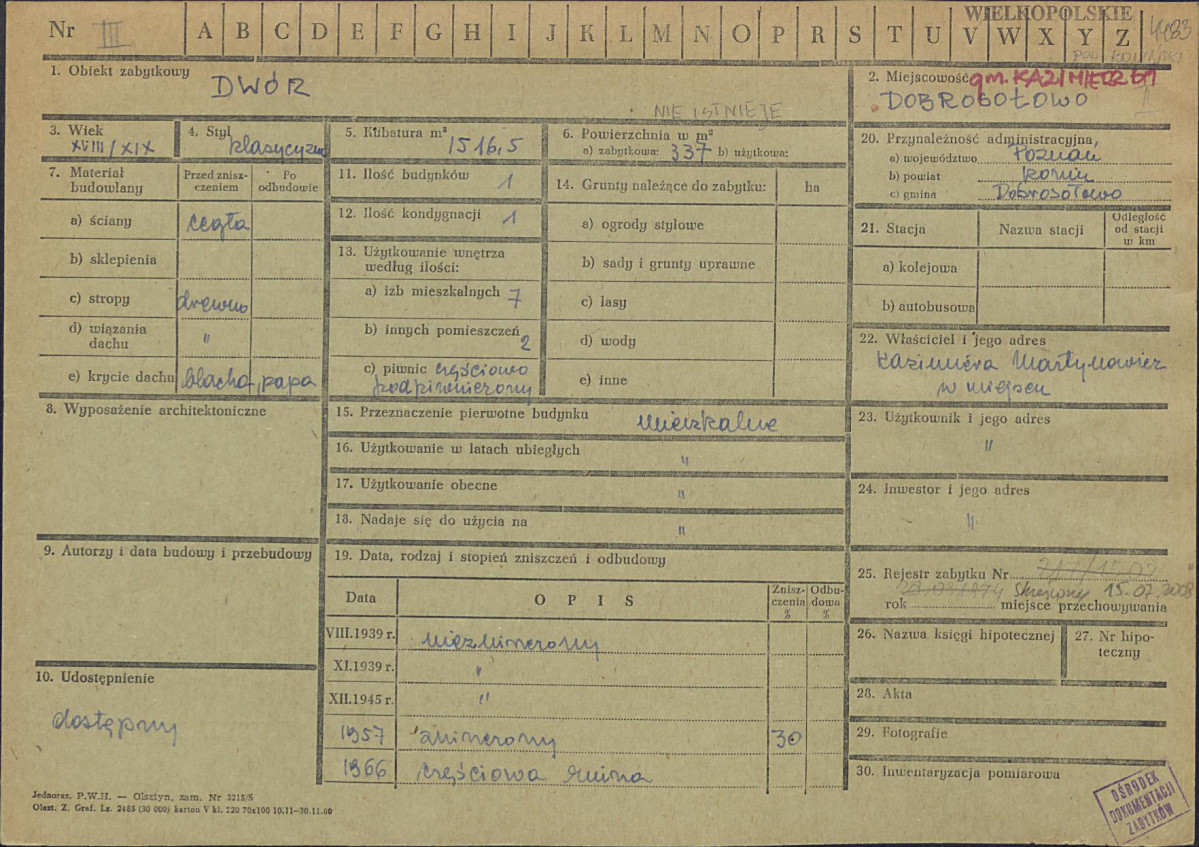 Nr III A B C D E F G H I J K L M N O P R S T U V W X Y Z
WIELKOPOLSKIE
4483
1. Obiekt zabytkowy
DWÓR
NIE ISTNIEJE
2. Miejscowość gm. KAZIMIERZ
DOBROSOŁOWO
3. Wiek
XVIII/XIX
4. Styl
klasycyzm
5. Kubatura m³
1516,5
6. Powierzchnia w m²
a) zabytkowa: 337 b) użytkowa:
7. Materiał budowlany
Przed zniszczeniem
Po odbudowie
a) ściany cegła
b) sklepienia
c) stropy drewno
d) wiązania dachu "
e) krycie dachu blacha, papa
8. Wyposażenie architektoniczne
9. Autorzy i data budowy i przebudowy
10. Udostępnienie
dostępny
11. Ilość budynków 1
12. Ilość kondygnacji 1
13. Użytkowanie wnętrza
według ilości:
a) izb mieszkalnych 7
b) innych pomieszczeń 2
c) piwnic częściowo
podpiwniczony
14. Grunty należące do zabytku: ha
a) ogrody stylowe
b) sady i grunty uprawne
c) lasy
d) wody
e) inne
15. Przeznaczenie pierwotne budynku mieszkalne
16. Użytkowanie w latach ubiegłych "
17. Użytkowanie obecne "
18. Nadaje się do użycia na "
19. Data, rodzaj i stopień zniszczeń i odbudowy
Data
O P I S
Zniszczenia %
Odbudowa %
VIII.1939 r. niezniszczony
XI.1939 r. "
XII.1945 r. "
1957 zniszczony 30
1966 częściowa ruina
20. Przynależność administracyjna,
a) województwo Poznań
b) powiat Konin
c) gmina Dobrosołowo
21. Stacja
Nazwa stacji
Odległość od stacji w km
a) kolejowa
b) autobusowa
22. Właściciel i jego adres
Kazimiera Martynowicz
w miejscu
23. Użytkownik i jego adres
"
24. Inwestor i jego adres
"
25. Rejestr zabytku Nr
Skreślony 15.07.2008
rok miejsce przechowywania
26. Nazwa księgi hipotecznej
27. Nr hipoteczny
28. Akta
29. Fotografie
30. Inwentaryzacja pomiarowa
OŚRODEK
DOKUMENTACJI
ZABYTKÓW
Jednoraz. P.W.H. — Olsztyn, zam. Nr 3215/S
Olszt. Z. Graf. Lz. 2485 (30 000) karton V kl. 220 70x100 10.11—30.11.60